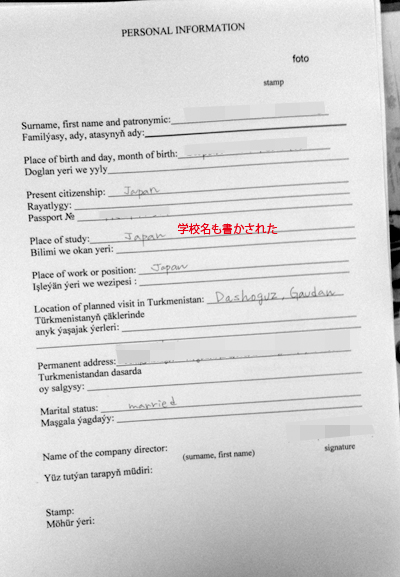 PERSONAL INFORMATION
foto
stamp
Surname, first name and patronymic:
Familýasy, ady, atasynyň ady:
Place of birth and day, month of birth:
Doglan ýeri we ýyly
Present citizenship: Japan
Raýatlygy:
Passport №
学校名も書かされた
Place of study: Japan
Bilimi we okan ýeri:
Place of work or position: Japan
Işleýän ýeri we wezipesi :
Location of planned visit in Turkmenistan: Dashoguz, Gaudan
Türkmenistanyň çäklerinde
anyk ýaşajak ýerleri:
Permanent address:
Turkmenistandan dasarda
oy salgysy:
Marital status: married
Maşgala ýagdaýy:
Name of the company director:
(surname, first name) signature
Ýüz tutýan tarapyň müdiri:
Stamp:
Möhür ýeri: